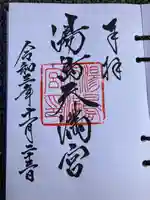 奉拝
湯島天満宮
令和三年十一月二十三日